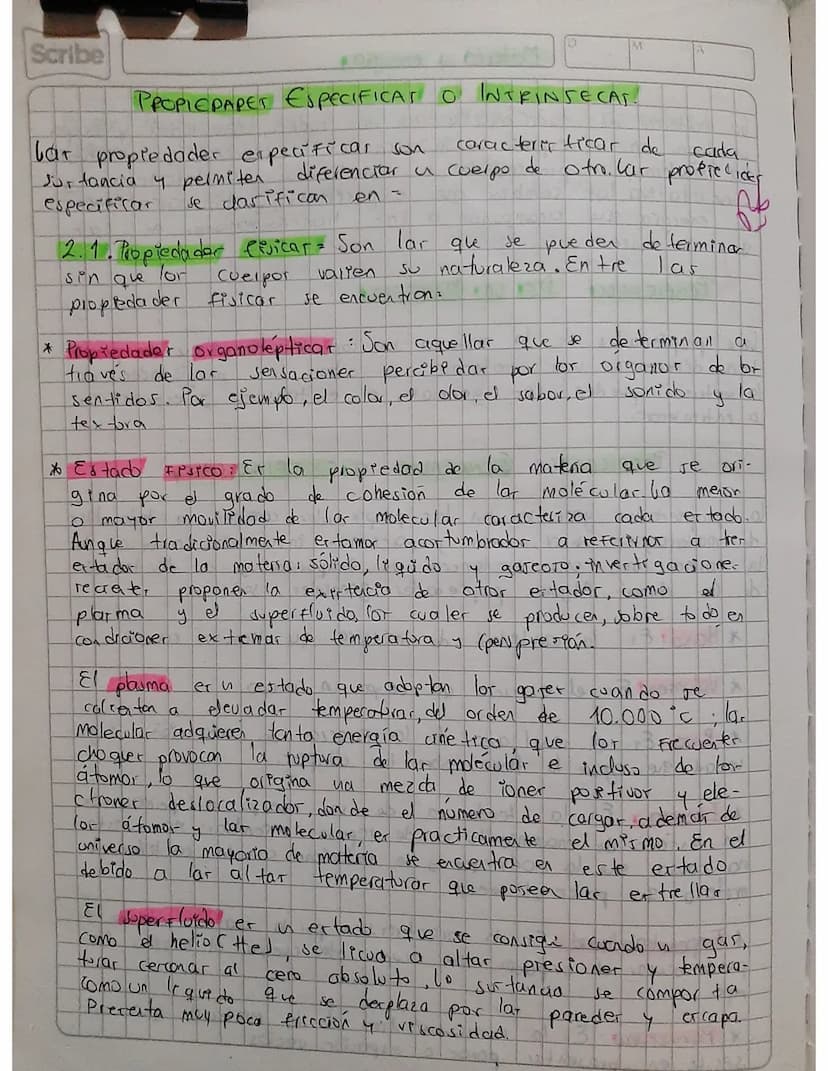 Scribe
D M A
PROPIEDADES ESPECIFICAS O INTRINSECAS.
Las propiedades especificas son caracteristicas de cada
sustancia y permiten diferenciar un cuerpo de otro. Las propiedades
especificas se clasifican en =
2.1. Propiedades fisicas = Son las que se pueden determinar
sin que los cuerpos varien su naturaleza. Entre las
propiedades fisicas se encuentran:
* Propiedades organolépticas : Son aquellas que se determinan a
través de las sensaciones percibedas por los órganos de los
sentidos. Por ejemplo, el color, el olor, el sabor, el sonido y la
textura
* Estado Fisico : Es la propiedad de la materia que se ori-
gina por el grado de cohesión de las moléculas. La menor
o mayor movilidad de las moleculas caracteriza cada estado.
Anque tradicionalmente estamos acostumbrados a referirnos a tres
estados de la materia: sólido, liquido y gaseoso; investigaciones
recientes, proponen la existencia de otros estados, como el
plasma y el superfluido, los cuales se producen, sobre todo en
condiciones extremas de temperatura y (pen) presión.
El plasma es un estado que adoptan los gases cuando se
calientan a elevadas temperaturas, del orden de 10.000 °C ; las
moleculas adquieren tanta energía cinetica, que los frecuentes
choques provocan la ruptura de las moléculas e incluso de los
átomos, lo que origina una mezcla de iones positivos y ele-
ctrones deslocalizados, donde el número de cargas, además de
los átomos y las moleculas, es practicamente el mismo. En el
universo la mayoria de materia se encuentra en este estado
debido a las altas temperaturas que poseen las estrellas
El superfluido es un estado que se consigue cuando un gas,
como el helio (He), se licua a altas presiones y tempera-
turas cercanas al cero absoluto, la sustancia se comporta
como un liquido que se desplaza por las paredes y escapa.
Presenta muy poca fricción y viscosidad.